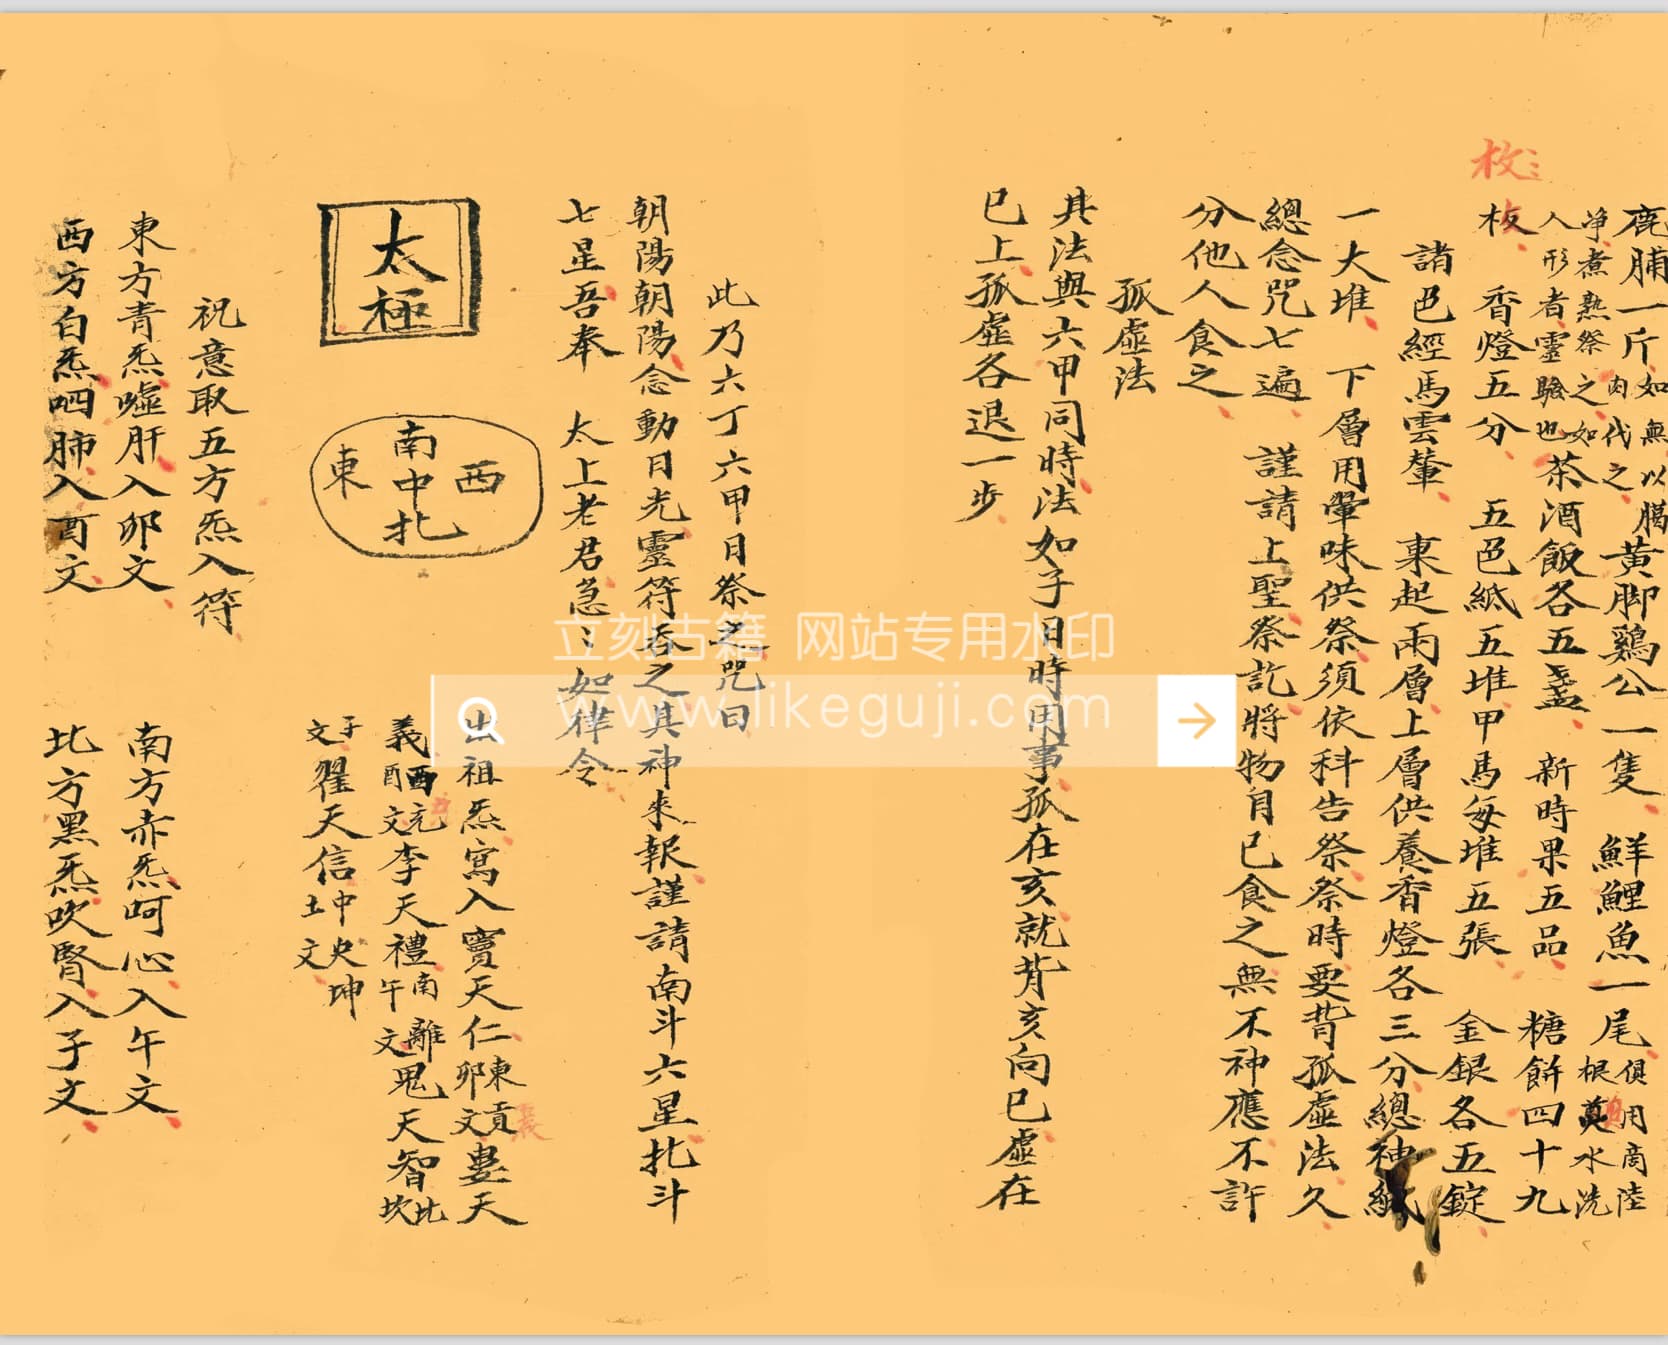 枚
鹿脯一斤如無以臈肉代之黃脚鷄公一隻鮮鯉魚一尾俱用商陸根奠水洗
净煮熟祭之如人形者靈驗也茶酒飯各五盞新時果五品糖餠四十九
板香燈五分五色紙五堆甲馬每堆五張金銀各五錠
諸色經馬雲輦東起兩層上層供養香燈各三分總神紙
一大堆下層用暈味供祭須依科告祭祭時要背孤虛法久
總念咒七遍謹請上聖祭訖將物自己食之無不神應不許
分他人食之
孤虛法
其法與六甲同時法如子日時用事孤在亥就背亥向巳虛在
巳上孤虛各退一步
此乃六丁六甲日祭之咒曰
朝陽朝陽念動日光靈符吞之其神來報謹請南斗六星北斗
七星吾奉太上老君急〻如律令
出祖炁寫入竇天仁東卯文貢婁天
義酉文元李天禮南離午文鬼天智北坎
子文翟天信中央坤土文
太極
南
西中東
北
祝意取五方炁入符
東方青炁噓肝入卯文南方赤炁呵心入午文
西方白炁呬肺入酉文北方黑炁吹腎入子文
立刻古籍 网站专用水印
www.likeguji.com